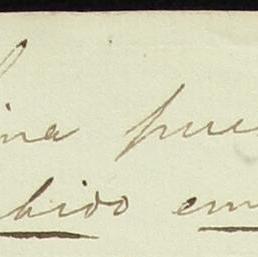 ina pue
bido em